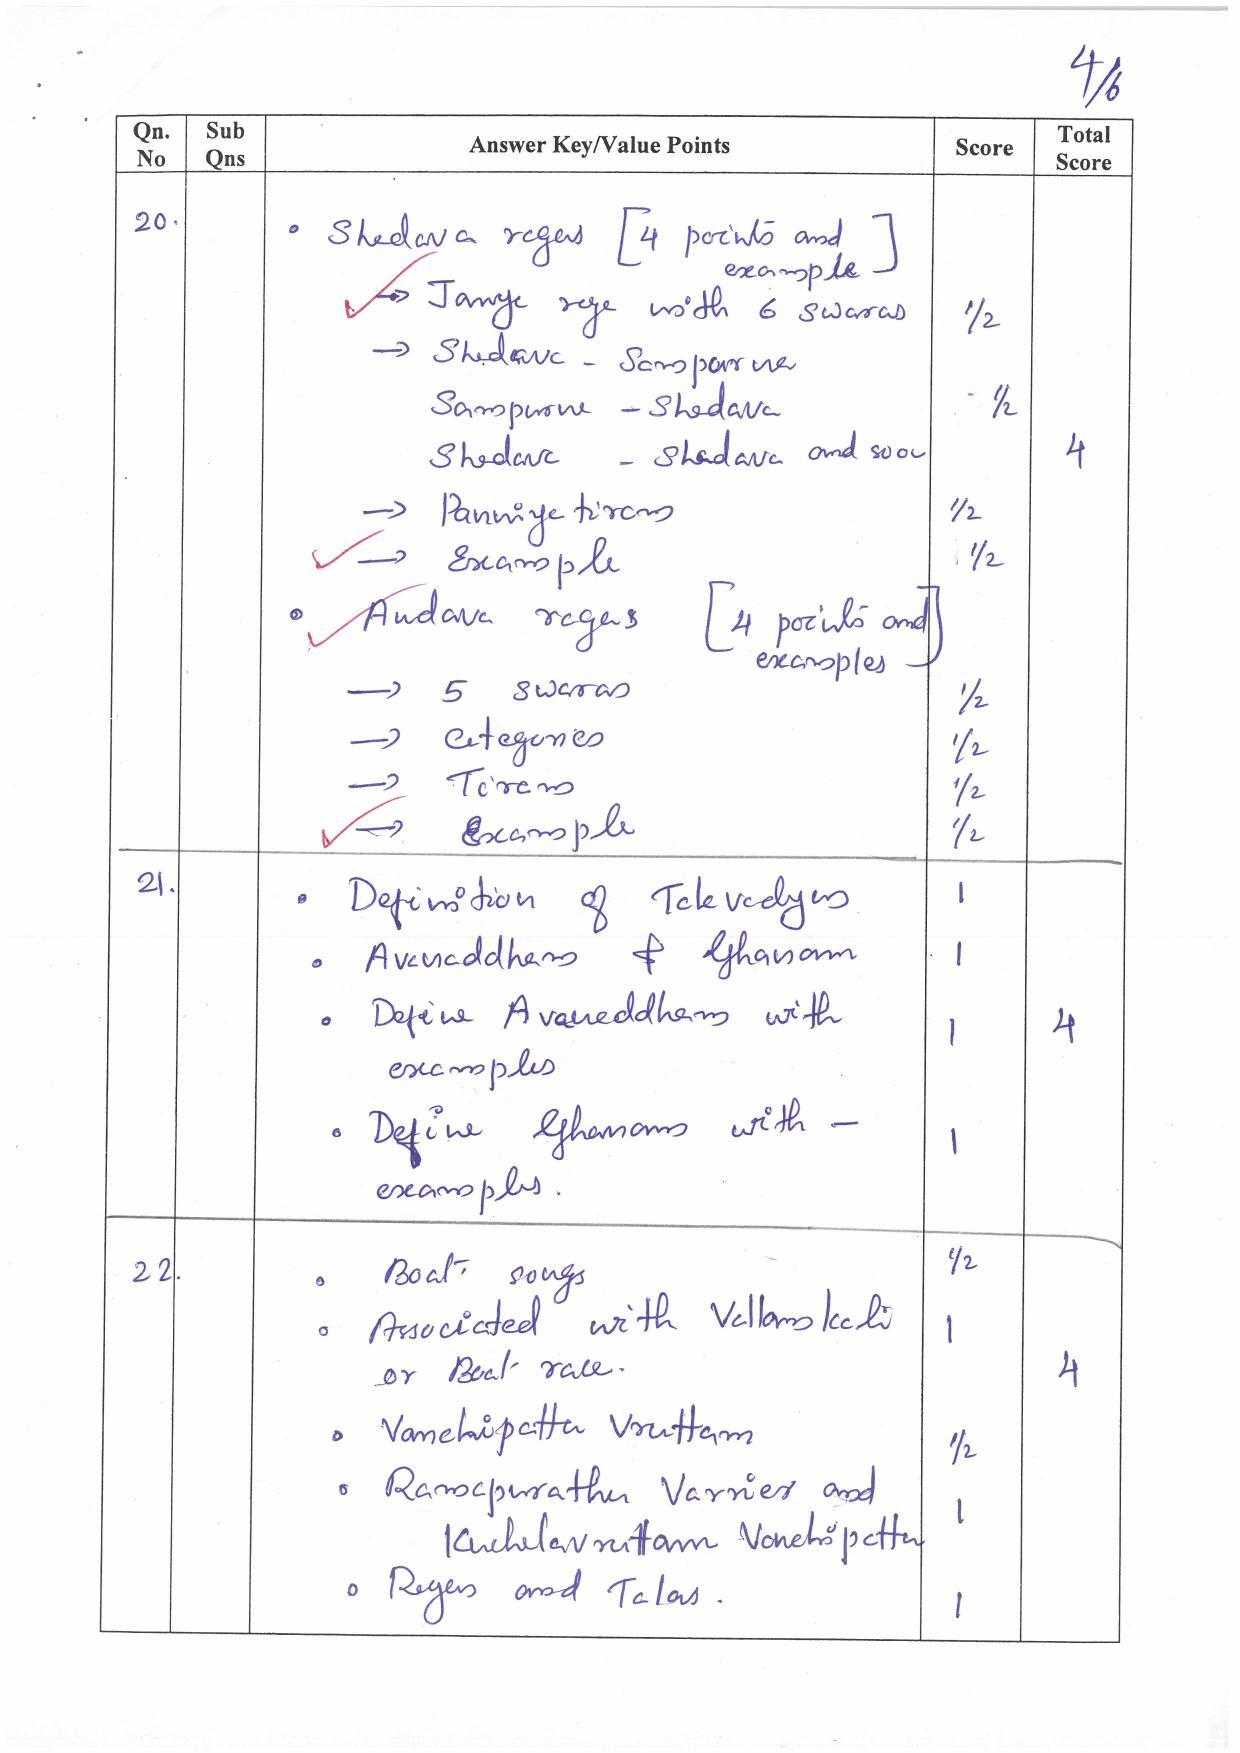 4/6
Qn. No Sub Qns Answer Key/Value Points Score Total Score
20. • Shadava ragas [4 points and
example]
→ Janya raga with 6 swaras 1/2
→ Shadava - Sampoorna
Sampurna - Shadava - 1/2
Shadava - Shadava and soon 4
→ Panniyetirams 1/2
→ Example 1/2
• Audava ragas [4 points and
examples]
→ 5 swaras 1/2
→ Categories 1/2
→ Tirams 1/2
→ Example 1/2
21. • Definition of Talavadyas 1
• Avanaddham & Ghanam 1
• Define Avanaddham with 1 4
examples
• Define Ghanam with - 1
examples.
22. • Boat songs 1/2
• Associated with Vallamkali 1
or Boat race. 4
• Vanchipattu Vruttam 1/2
• Ramapurathu Varrier and 1
Kuchelavruttam Vanchipattu
• Ragas and Talas. 1